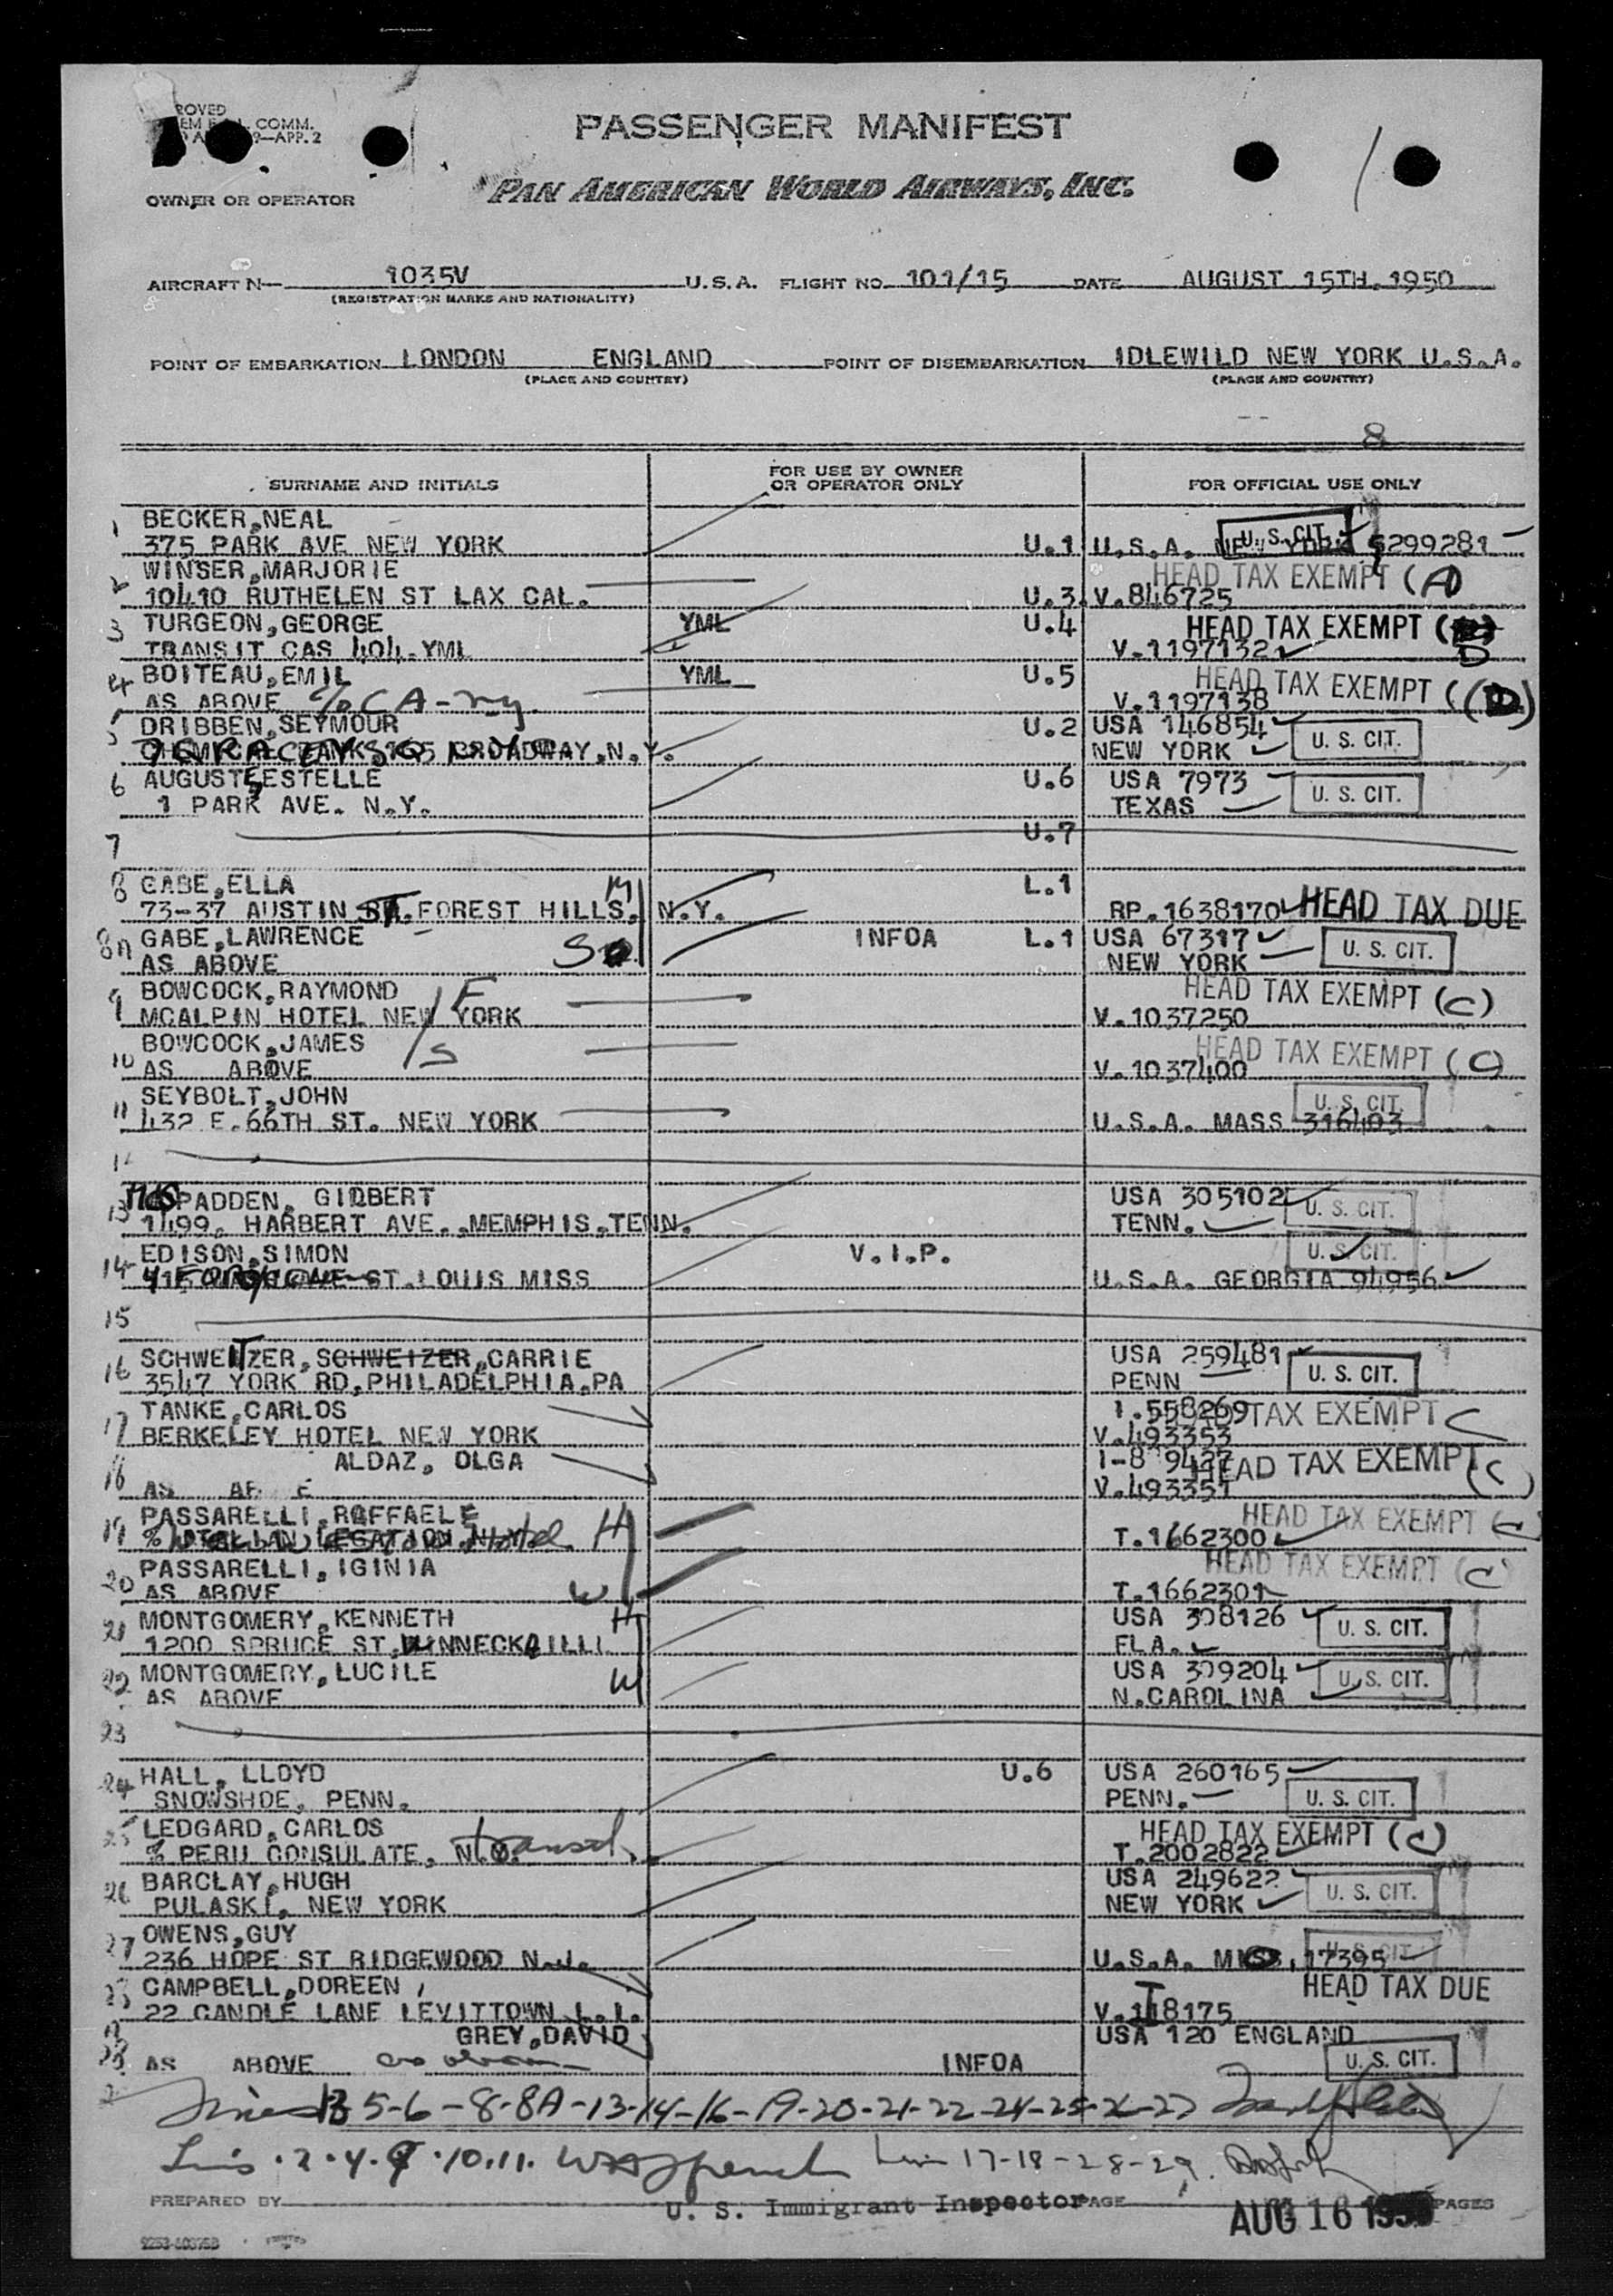 ROVED
COMM.
9—APP. 2
PASSENGER MANIFEST
OWNER OR OPERATOR
PAN AMERICAN WORLD AIRWAYS, INC.
AIRCRAFT N— 1035V U.S.A. FLIGHT NO. 101/15 DATE AUGUST 15TH. 1950
(REGISTRATION MARKS AND NATIONALITY)
POINT OF EMBARKATION LONDON ENGLAND POINT OF DISEMBARKATION IDLEWILD NEW YORK U.S.A.
(PLACE AND COUNTRY) (PLACE AND COUNTRY)
8
SURNAME AND INITIALS FOR USE BY OWNER OR OPERATOR ONLY FOR OFFICIAL USE ONLY
1 BECKER,NEAL U. S. CIT.
375 PARK AVE NEW YORK U.1 U.S.A. NEW YORK 299281
2 WINSER,MARJORIE HEAD TAX EXEMPT (A)
10410 RUTHELEN ST LAX CAL. U.3. V.846725
3 TURGEON,GEORGE YML U.4 HEAD TAX EXEMPT D
TRANSIT CAS 404-YML V-1197132
4 BOITEAU,EMIL YML U.5 HEAD TAX EXEMPT (D)
AS ABOVE % CA - ny. V.1197138
5 DRIBBEN,SEYMOUR U.2 USA 146854
BROADWAY,N.Y. NEW YORK U. S. CIT.
6 AUGUST,ESTELLE U.6 USA 7973
1 PARK AVE. N.Y. TEXAS U. S. CIT.
7 U.7
8 GABE,ELLA M L.1
73-37 AUSTIN ST.FOREST HILLS. N.Y. RP.1638170 HEAD TAX DUE
8A GABE,LAWRENCE INFOA L.1 USA 67317
AS ABOVE NEW YORK U. S. CIT.
9 BOWCOCK,RAYMOND F HEAD TAX EXEMPT (C)
MCALPIN HOTEL NEW YORK V.1037250
BOWCOCK,JAMES S HEAD TAX EXEMPT (C)
10 AS ABOVE V.1037400
SEYBOLT,JOHN U. S. CIT.
11 432 E.66TH ST. NEW YORK U.S.A. MASS 316403
12
13 PADDEN, GILBERT USA 305102
1499, HARBERT AVE.,MEMPHIS,TENN. TENN. U. S. CIT.
14 EDISON,SIMON V.I.P. U. S. CIT.
ST.LOUIS MISS U.S.A. GEORGIA 94956
15
16 SCHWEITZER, SCHWEIZER,CARRIE USA 259481
3547 YORK RD,PHILADELPHIA,PA PENN U. S. CIT.
17 TANKE,CARLOS I.558269 TAX EXEMPT C
BERKELEY HOTEL NEW YORK V.493353
18 ALDAZ, OLGA HEAD TAX EXEMPT (C)
AS V.493351
19 PASSARELLI,RAFFAELE H HEAD TAX EXEMPT C
T.1662300
20 PASSARELLI,IGINIA HEAD TAX EXEMPT (C)
AS ABOVE W T.1662301
21 MONTGOMERY,KENNETH H USA 308126
1200 SPRUCE ST, WINNECKA ILLI. FLA. U. S. CIT.
22 MONTGOMERY, LUCILE USA 309204
AS ABOVE W N.CAROLINA U. S. CIT.
23
24 HALL, LLOYD U.6 USA 260165
SNOWSHOE, PENN. PENN. U. S. CIT.
25 LEDGARD,CARLOS HEAD TAX EXEMPT (C)
% PERU CONSULATE, transit. T.2002822
26 BARCLAY,HUGH USA 249622
PULASKI, NEW YORK NEW YORK U. S. CIT.
27 OWENS,GUY U. S. CIT.
236 HOPE ST RIDGEWOOD N.J. U.S.A. 17395
CAMPBELL,DOREEN HEAD TAX DUE
22 CANDLE LANE LEVITTOWN L.I. V.118175
GREY,DAVID USA 120 ENGLAND
AS ABOVE as above INFOA U. S. CIT.
5-6-8-8A-13-14-16-19-20-21-22-24-25-26-27
Lines 2.4.9.10.11. 17-18-28-29.
PREPARED BY U. S. Immigrant Inspector PAGE AUG 16 1950 PAGES